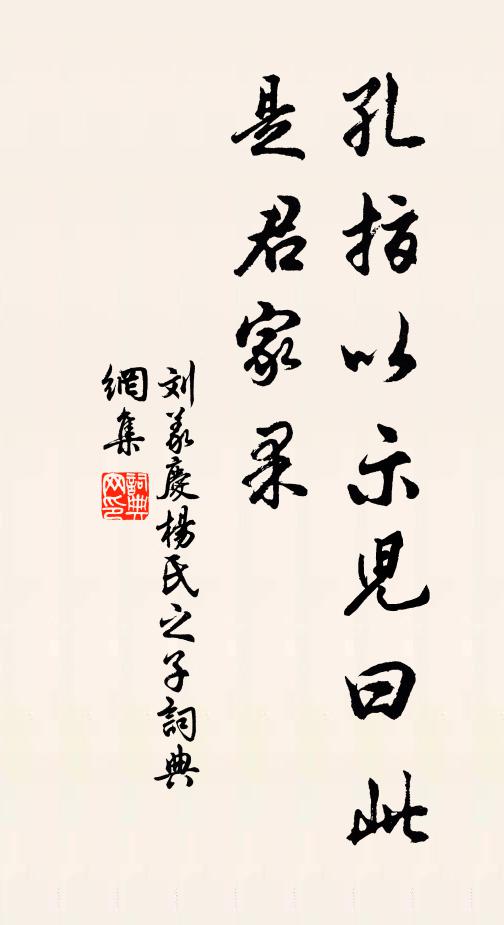 孔指以示兒曰此
是君家果
刘義慶楊氏之子詞典
網集
詞典
网印